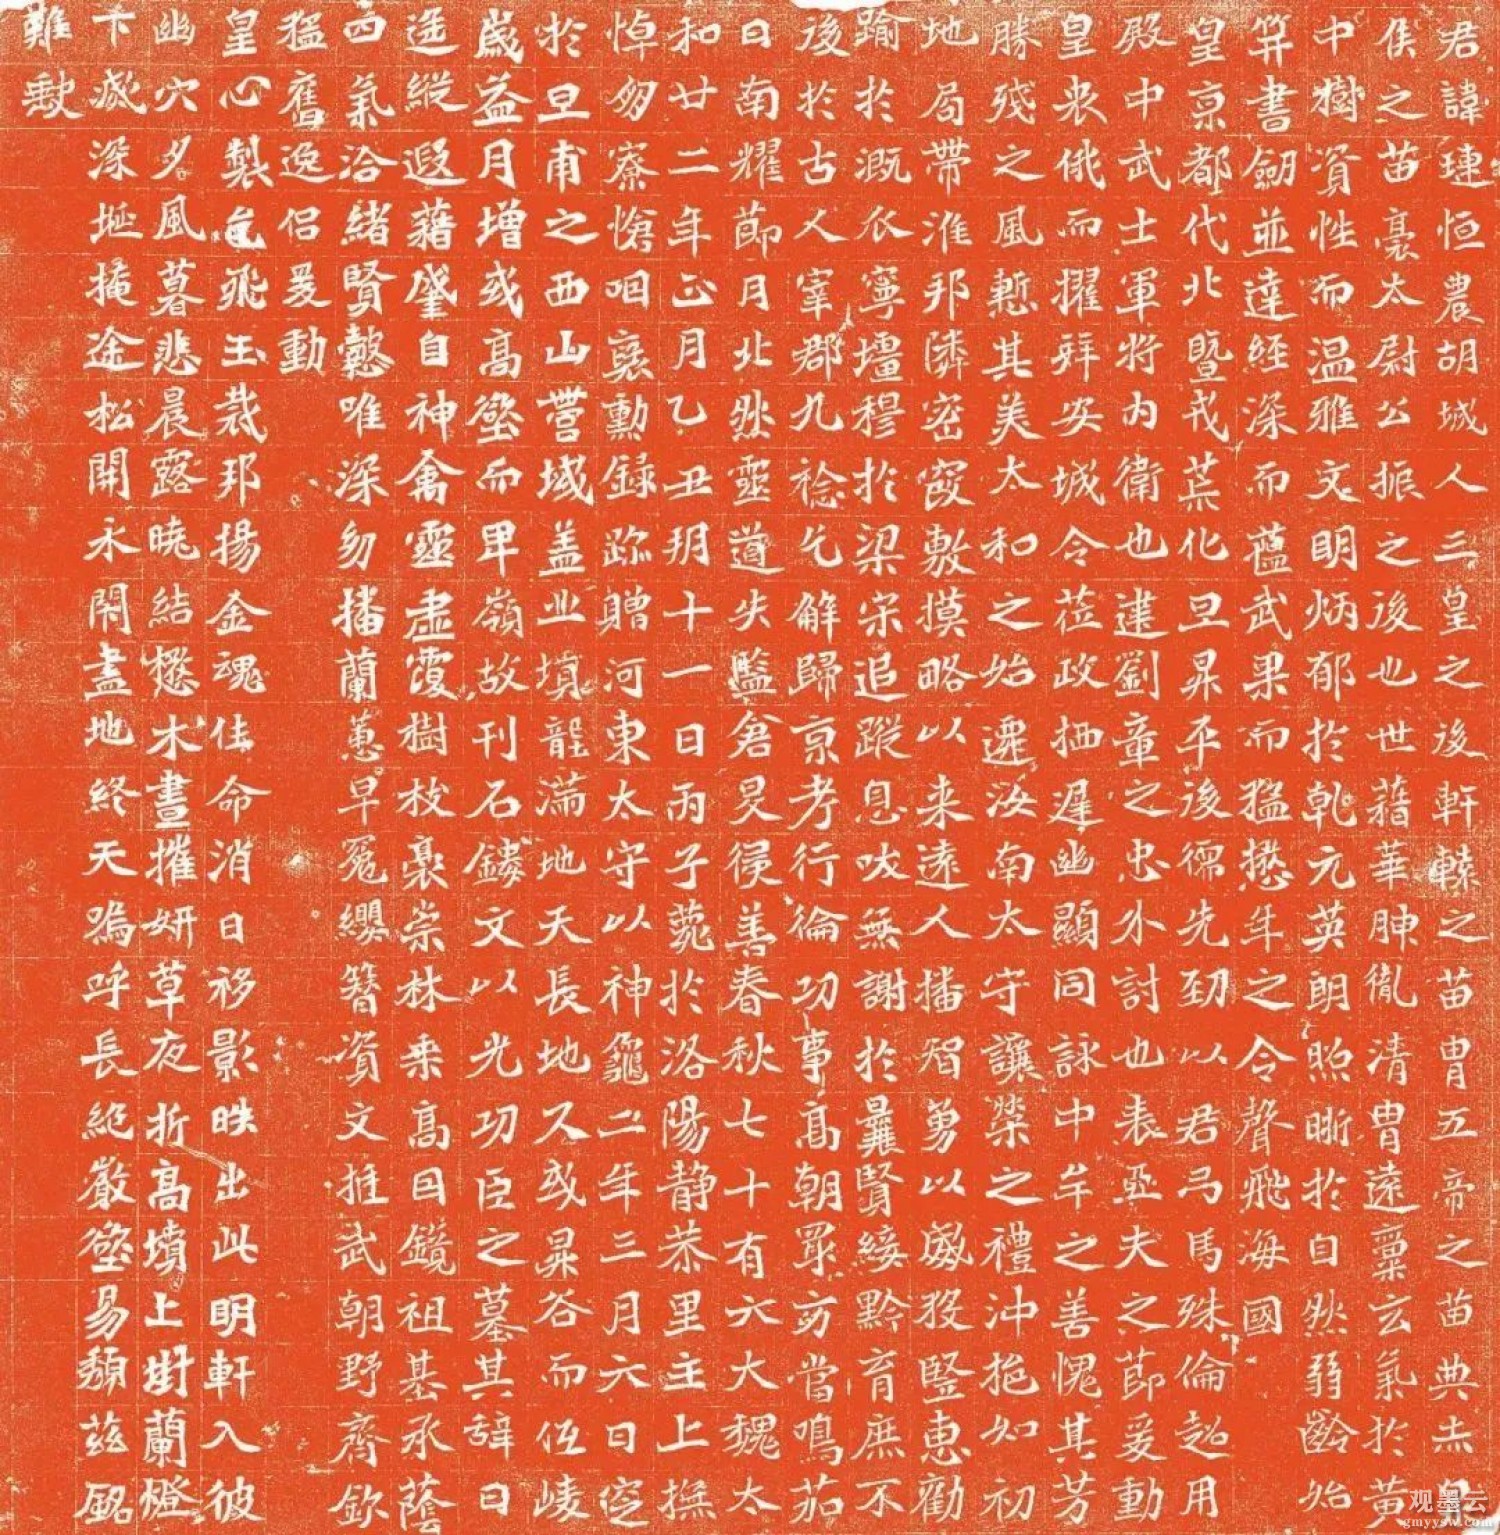 君諱璉恒農胡城人三皇之後軒轅之苗胄五帝之苗典未皇
侯之苗裔太尉公振之後也世藉華胂胤清胄遠稟玄氣於黃
中樹資性而温雅文明炳郁於乹元英朗照晰於自然弱齡始
笄書劒並達經深而藴武果而猛懋年之令聲飛海國
皇京都代北暨戎菜化旦昇平後德先勁以君弓馬殊倫起用
殿中武士軍将内衛也建劉章之忠小討也表亞夫之節爰動
皇衷俄而擢拜安城令莅政栖遲幽顯同詠中牟之善愧其芳
勝殘之風慙其美太和之始遷汝南太守讓榮之禮沖抱如初
地局帶淮邦隣密霞敷摸略以来遠人播智勇以威殺竪惠勸
踰於溉
後於古人宰郡九稔乞解歸京考行倫功事高朝衆方當鳴茄
日南耀節月北然靈道失監倉旻徂善春秋七十有六大魏太
和廿二年正月乙丑玥十一日丙子薨於洛陽静恭里主上撫
悼匆寮愴咽襄勳録跡贈河東太守以神龜二年三月六日窆
於旦甫之西山營域盖业填龍滿地天長地久或昇谷而伍崚
歲益月增或高壑而卑嶺故刊石鏤文以光功臣之墓其辭曰
遥縱遐藉肇自神禽靈虚復樹枝裹崇林乗高曰鏡祖基承蔭
西氣洽緒賢懿唯深匆播蘭蕙早冕纓簪資文推武朝野齊欽
猛舊逸侣爰動
皇心製色飛玉裁邦揚金魂佳命消日移影昳出此明軒入彼
幽穴夕風暮悲晨露曉結愁木晝摧妍草夜折高墳上樹蘭燈
下滅深埏掩途松開永閇盡地終天嗚呼長絶嚴壑易頹茲銘
難歇
观墨云
gmyysw.com